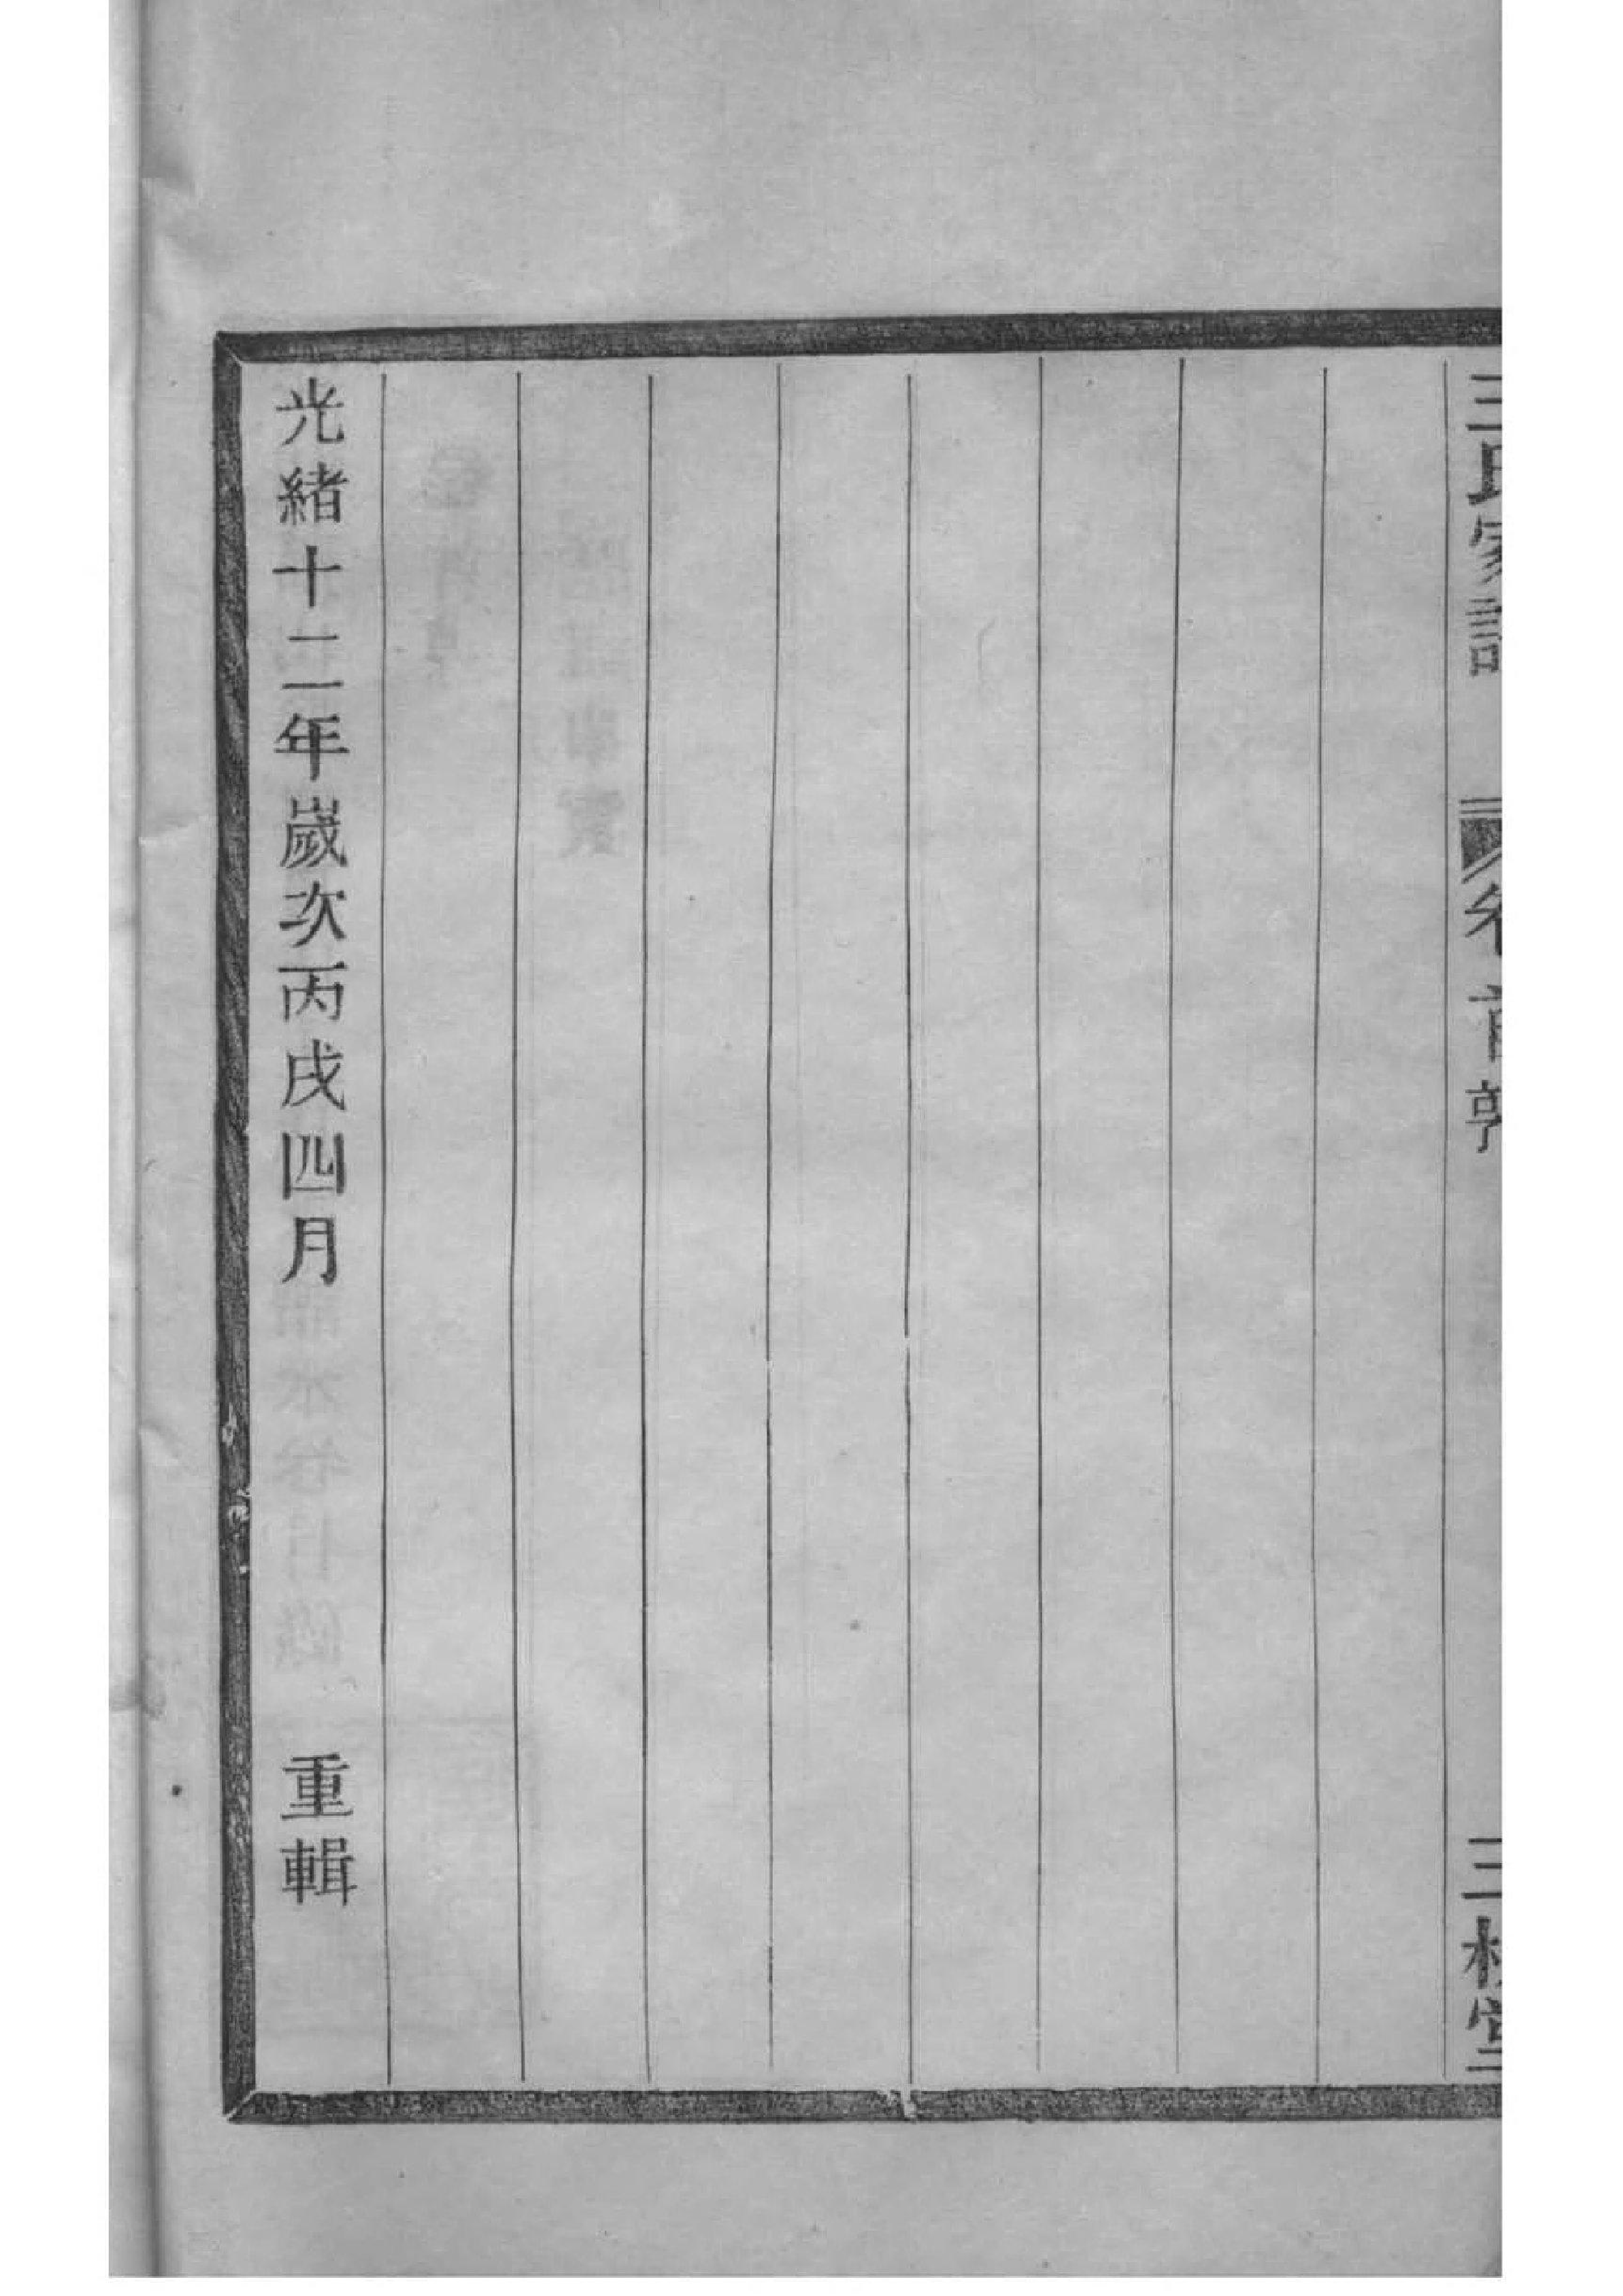 王氏家譜 卷首 三槐堂
光緒十二年歲次丙戌四月 重輯